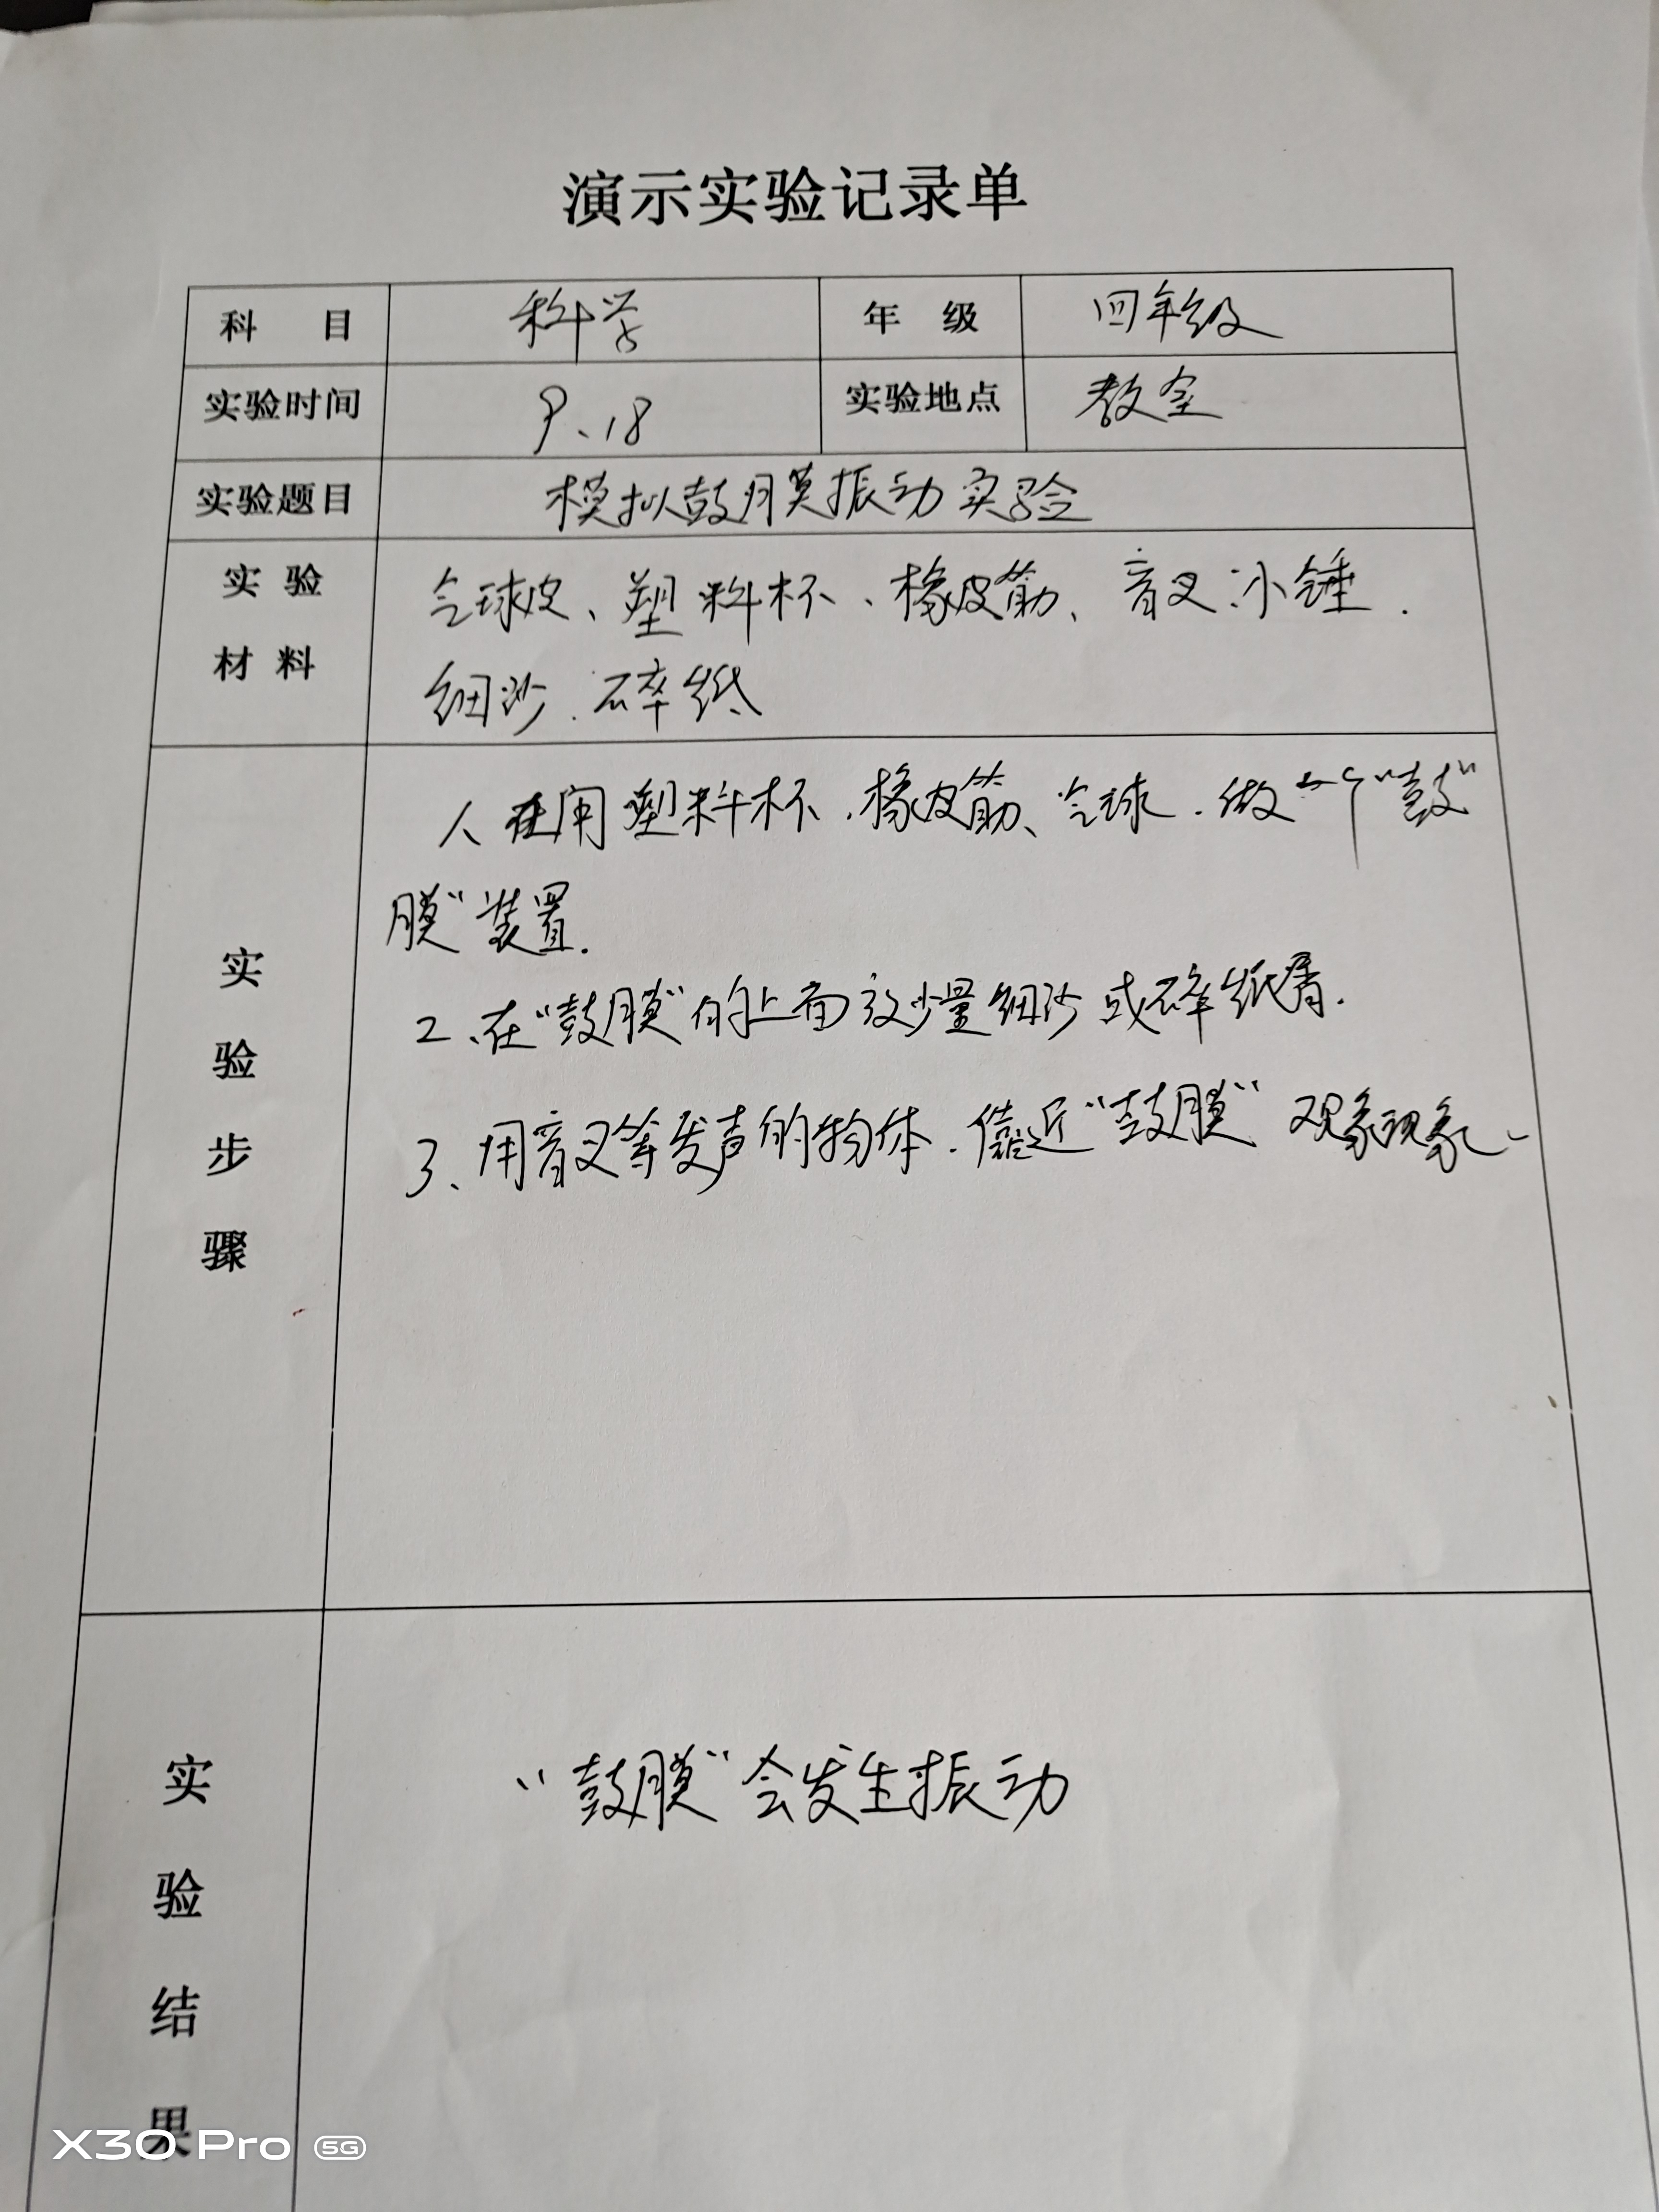 演示实验记录单
科 目 科学 年 级 四年级
实验时间 9、18 实验地点 教室
实验题目 模拟鼓膜振动实验
实 验 气球皮、塑料杯、橡皮筋、音叉、小锤、
材 料 细沙、碎纸
1、用塑料杯、橡皮筋、气球、做一个“鼓
膜”装置.
2、在“鼓膜”的上面放少量细沙或碎纸屑.
3、用音叉等发声的物体、靠近“鼓膜”观象现象、
实
验
步
骤
“鼓膜”会发生振动
实
验
结
果
X30 Pro 5G